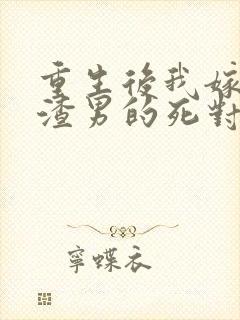 重生後我嫁
渣男的死對
寧蝶衣